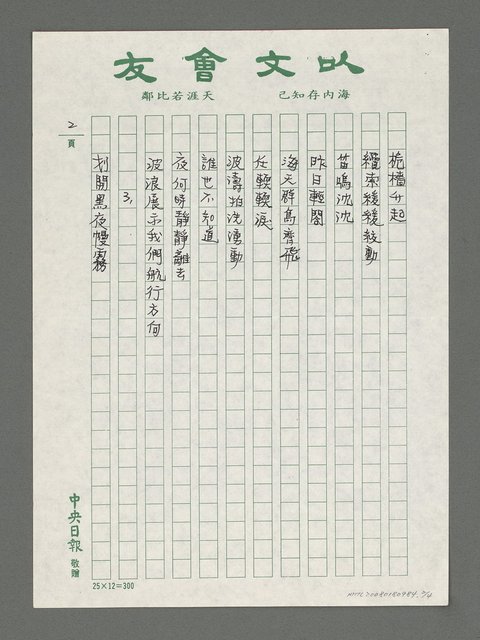 以文會友
海內存知己
天涯若比鄰
桅檣升起
纜索緩緩絞動
笛鳴沈沈
昨日輕閤
海天群鳥齊飛
任輭輭淚
波濤拍洗湧動
誰也不知道
夜何時靜靜離去
波浪展示我們航行方向
3,
划開黑夜慢霧
2
頁
中央日報
敬贈
25×12=300